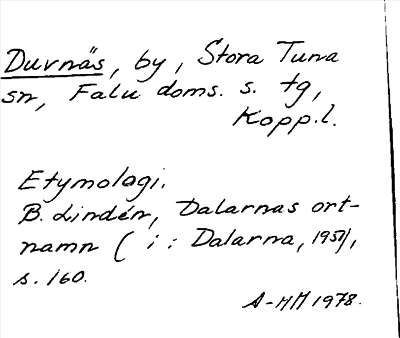 Duvnäs, by, Stora Tuna
sn, Falu doms. s. tg,
Kopp.l.
Etymologi.
B. Lindén, Dalarnas ort-
namn (i: Dalarna, 1951),
s. 160.
A-MM 1978.